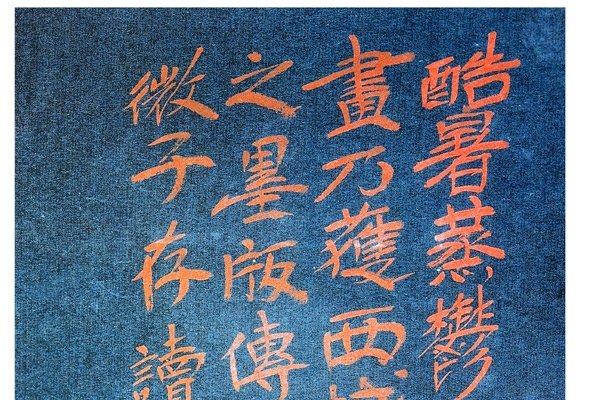 酷暑蒸鬱
畫乃獲西
之墨版傳
微子存讀